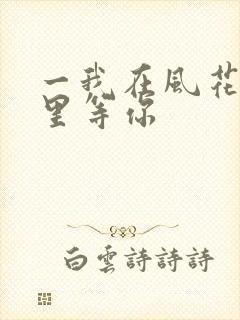 一我在風花
里等你
白雲詩詩詩